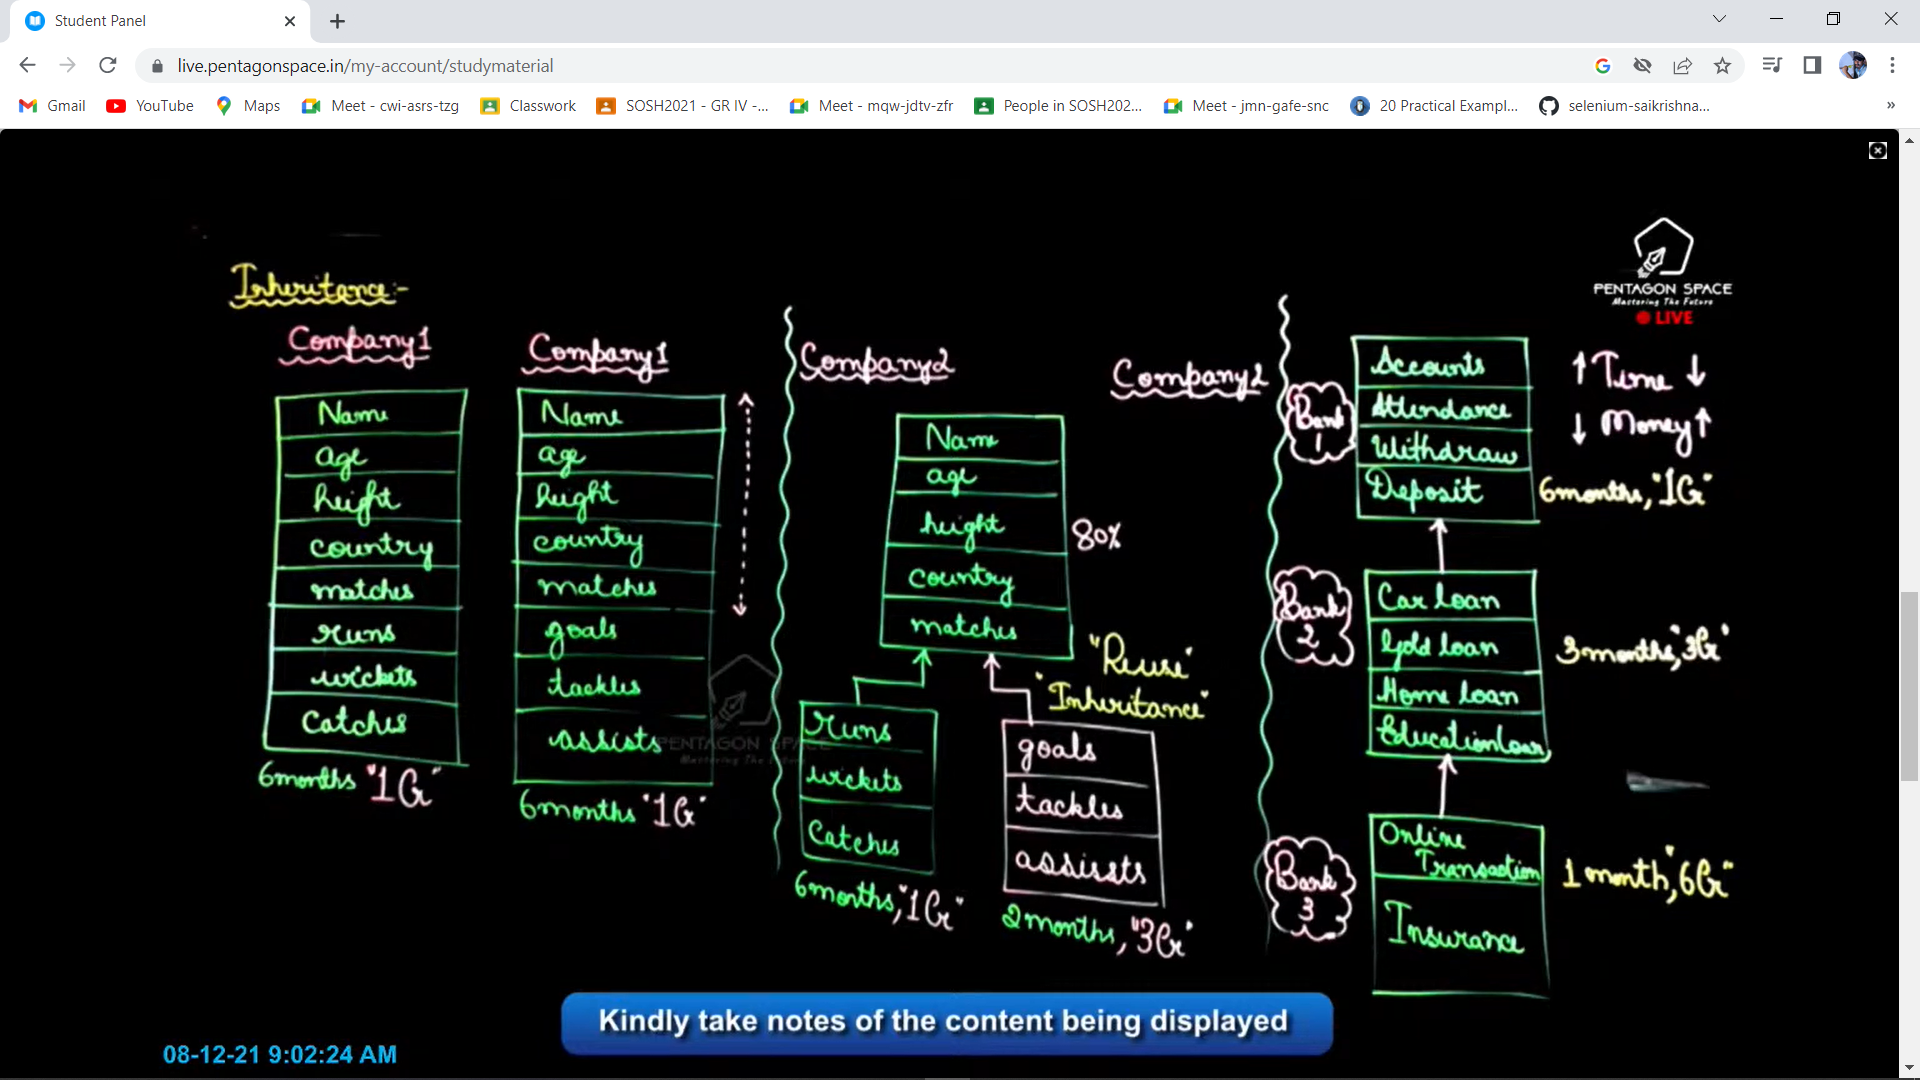 Student Panel
live.pentagonspace.in/my-account/studymaterial
Gmail
YouTube
Maps
Meet - cwi-asrs-tzg
Classwork
SOSH2021 - GR IV -...
Meet - mqw-jdtv-zfr
People in SOSH202...
Meet - jmn-gafe-snc
20 Practical Exampl...
selenium-saikrishna...
»
PENTAGON SPACE
Mastering The Future
LIVE
Inheritance:-
Company1
Name
age
height
country
matches
runs
wickets
Catches
6months "1Cr"
Company1
Name
age
height
country
matches
goals
tackles
assists
6months "1Cr"
PENTAGON SPACE
Mastering The Future
Company2
Company2
Name
age
height
country
matches
80%
"Reuse"
"Inheritance"
runs
wickets
Catches
6months, "1Cr"
goals
tackles
assissts
2months, "3Cr"
Bank 1
Accounts
Attendance
Withdraw
Deposit
↑ Time ↓
↓ Money ↑
6months, "1Cr"
Bank 2
Car loan
Gold loan
Home loan
Education loan
3months, "3Cr"
Bank 3
Online
Transaction
Insurance
1month, "6Cr"
Kindly take notes of the content being displayed
08-12-21 9:02:24 AM